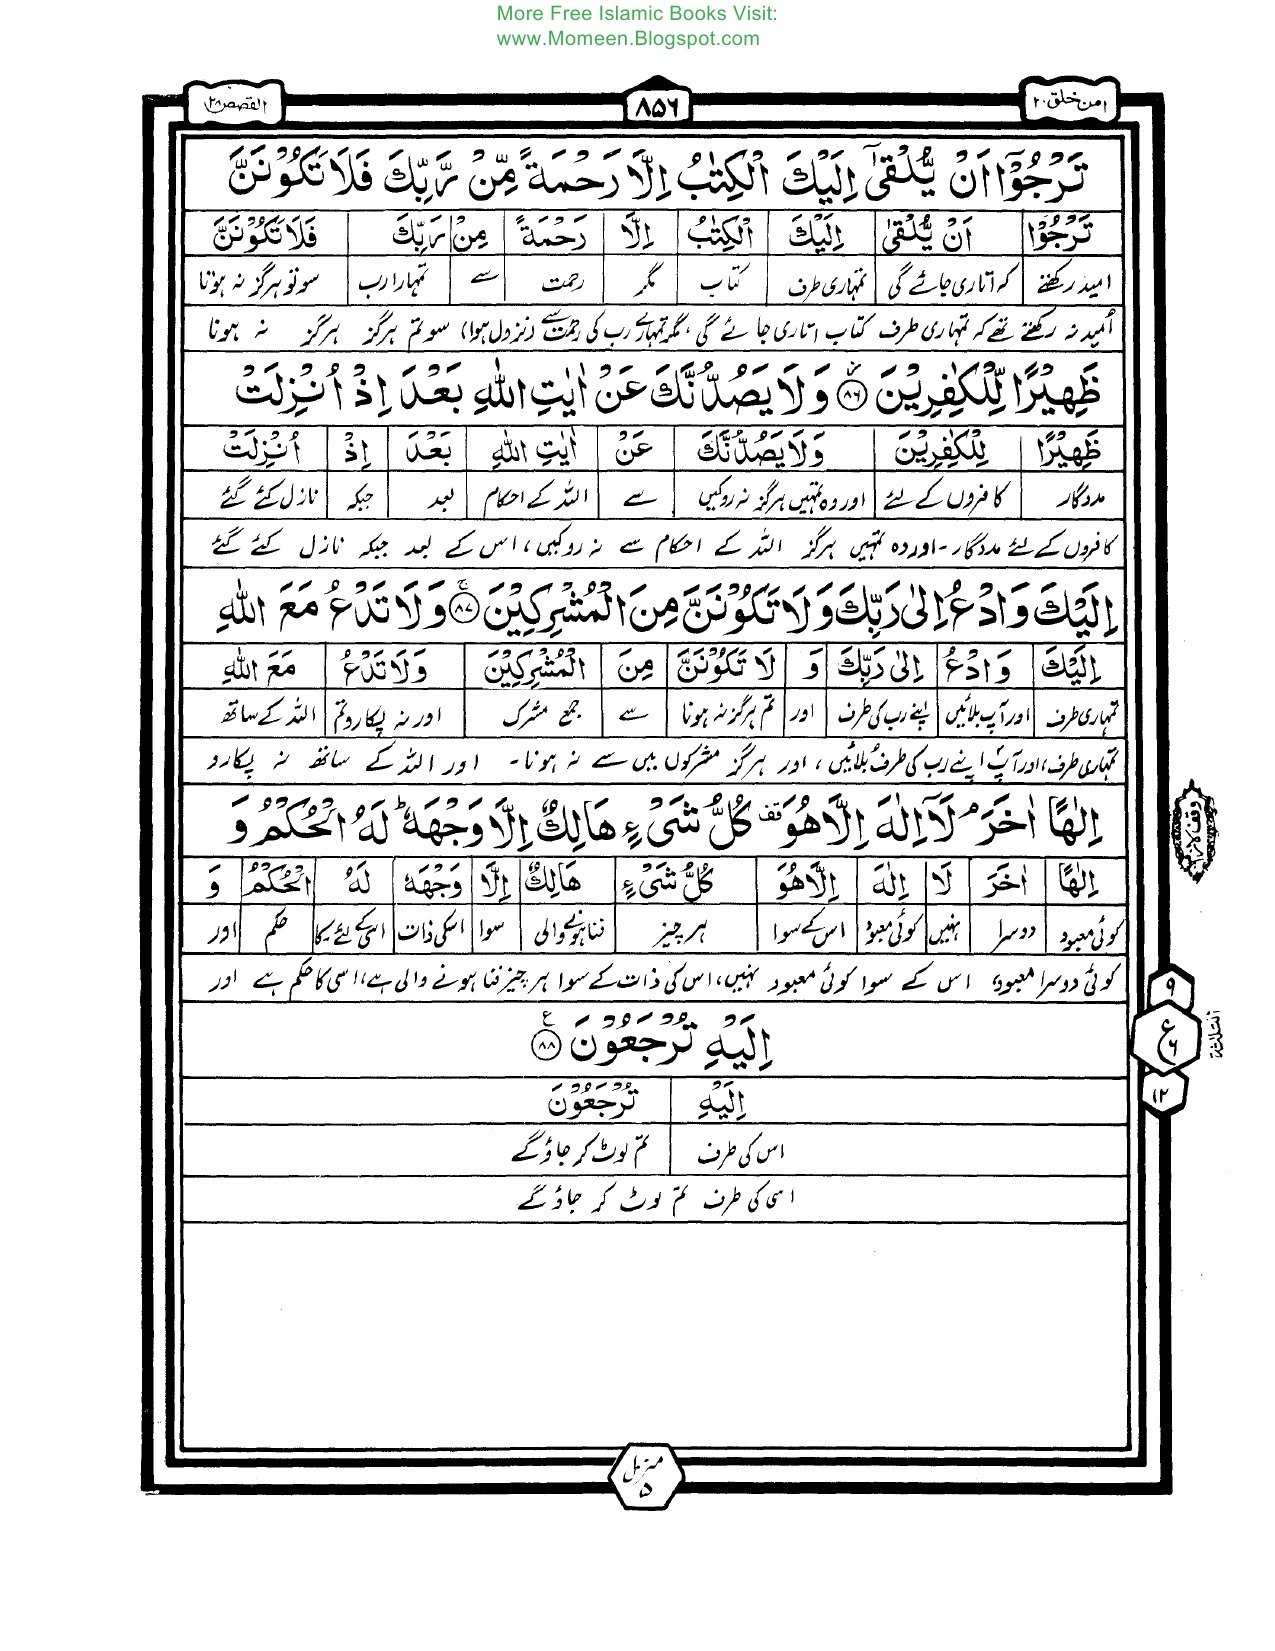 More Free Islamic Books Visit:
www.Momeen.Blogspot.com
امن خلق ۲۰
۸۵۶
القصص ۲۸
تَرْجُوْۤا اَنْ یُّلْقٰۤی اِلَیْكَ الْكِتٰبُ اِلَّا رَحْمَةً مِّنْ رَّبِّكَ فَلَا تَكُوْنَنَّ
تَرْجُوْا اَنْ یُّلْقٰی اِلَیْكَ الْكِتٰبُ اِلَّا رَحْمَةً مِنْ رَبِّكَ فَلَا تَكُوْنَنَّ
امید رکھتے کہ اتاری جائے گی تمہاری طرف کتاب مگر رحمت سے تمہارا رب سو تو ہرگز نہ ہونا
اُمید نہ رکھتے تھے کہ تمہاری طرف کتاب اتاری جائے گی، مگر تمہارے رب کی رحمت سے (نزول ہوا) سو تم ہرگز ہرگز نہ ہونا
ظَهِیْرًا لِّلْكٰفِرِیْنَ ۸۶ وَلَا یَصُدُّنَّكَ عَنْ اٰیٰتِ اللّٰهِ بَعْدَ اِذْ اُنْزِلَتْ
ظَهِیْرًا لِلْكٰفِرِیْنَ وَلَا یَصُدُّنَّكَ عَنْ اٰیٰتِ اللّٰهِ بَعْدَ اِذْ اُنْزِلَتْ
مددگار کافروں کے لئے اور وہ تمہیں ہرگز نہ روکیں سے اللہ کے احکام بعد جبکہ نازل کئے گئے
کافروں کے لئے مددگار - اور وہ تمہیں ہرگز اللہ کے احکام سے نہ روکیں، اس کے بعد جبکہ نازل کئے گئے
اِلَیْكَ وَادْعُ اِلٰی رَبِّكَ وَلَا تَكُوْنَنَّ مِنَ الْمُشْرِكِیْنَ ۸۷ وَلَا تَدْعُ مَعَ اللّٰهِ
اِلَیْكَ وَادْعُ اِلٰی رَبِّكَ وَ لَا تَكُوْنَنَّ مِنَ الْمُشْرِكِیْنَ وَلَا تَدْعُ مَعَ اللّٰهِ
تمہاری طرف اور آپ بلائیں اپنے رب کی طرف اور تم ہرگز نہ ہونا سے جمع مشرک اور نہ پکارو تم اللہ کے ساتھ
تمہاری طرف، اور آپ اپنے رب کی طرف بلائیں، اور ہرگز مشرکوں میں سے نہ ہونا - اور اللہ کے ساتھ نہ پکارو
اِلٰهًا اٰخَرَ ۘ لَاۤ اِلٰهَ اِلَّا هُوَ قف كُلُّ شَیْءٍ هَالِكٌ اِلَّا وَجْهَهٗ ؕ لَهُ الْحُكْمُ وَ
اِلٰهًا اٰخَرَ لَا اِلٰهَ اِلَّا هُوَ كُلُّ شَیْءٍ هَالِكٌ اِلَّا وَجْهَهٗ لَهُ الْحُكْمُ وَ
کوئی معبود دوسرا نہیں کوئی معبود اس کے سوا ہر چیز فنا ہونے والی سوا اسکی ذات اسی کے لئے۔کا حکم اور
کوئی دوسرا معبود، اس کے سوا کوئی معبود نہیں، اس کی ذات کے سوا ہر چیز فنا ہونے والی ہے، اسی کا حکم ہے اور
اِلَیْهِ تُرْجَعُوْنَ ۸۸ ع
اِلَیْهِ تُرْجَعُوْنَ
اس کی طرف تم لوٹ کر جاؤ گے
اسی کی طرف تم لوٹ کر جاؤ گے
وقف لازم
۹
ع
۶
۱۲
الثلثة
منزل
۵